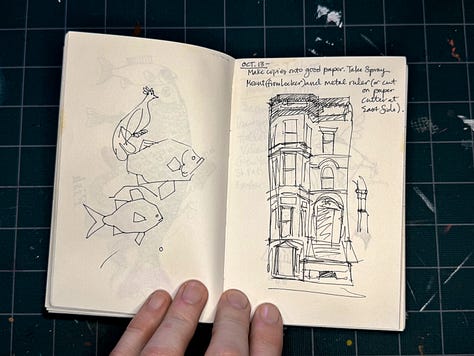 OCT. 13 -
Make copies onto good paper. Take Spray
Mount (from locker) and metal ruler (or cut
on paper
cutter at
East Side).